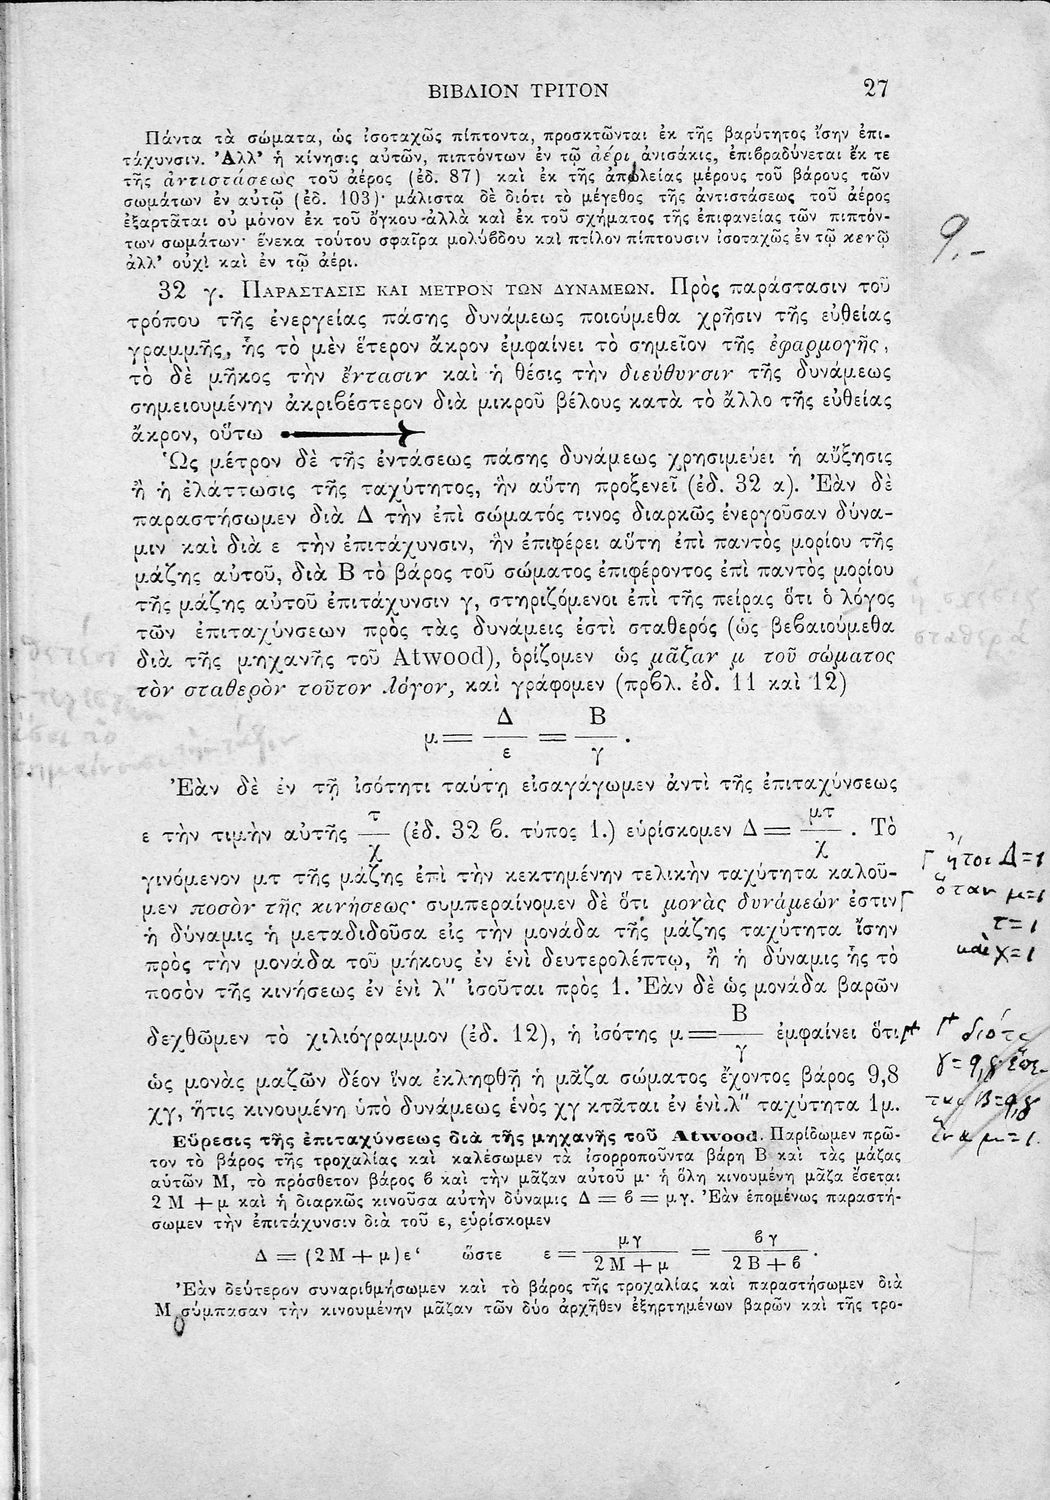 ΒΙΒΛΙΟΝ ΤΡΙΤΟΝ 27
Πάντα τὰ σώματα, ὡς ἰσοταχῶς πίπτοντα, προσκτῶνται ἐκ τῆς βαρύτητος ἴσην ἐπι-
τάχυνσιν. Ἀλλ' ἡ κίνησις αὐτῶν, πιπτόντων ἐν τῷ ἀέρι ἀνισάκις, ἐπιβραδύνεται ἔκ τε
τῆς ἀντιστάσεως τοῦ ἀέρος (ἐδ. 87) καὶ ἐκ τῆς ἀπωλείας μέρους τοῦ βάρους τῶν
σωμάτων ἐν αὐτῷ (ἐδ. 103)· μάλιστα δὲ διότι τὸ μέγεθος τῆς ἀντιστάσεως τοῦ ἀέρος
ἐξαρτᾶται οὐ μόνον ἐκ τοῦ ὄγκου ἀλλὰ καὶ ἐκ τοῦ σχήματος τῆς ἐπιφανείας τῶν πιπτόν-
των σωμάτων· ἕνεκα τούτου σφαῖρα μολύβδου καὶ πτίλον πίπτουσιν ἰσοταχῶς ἐν τῷ κενῷ
ἀλλ' οὐχὶ καὶ ἐν τῷ ἀέρι.
9.-
32 γ. ΠΑΡΑΣΤΑΣΙΣ ΚΑΙ ΜΕΤΡΟΝ ΤΩΝ ΔΥΝΑΜΕΩΝ. Πρὸς παράστασιν τοῦ
τρόπου τῆς ἐνεργείας πάσης δυνάμεως ποιούμεθα χρῆσιν τῆς εὐθείας
γραμμῆς, ἧς τὸ μὲν ἕτερον ἄκρον ἐμφαίνει τὸ σημεῖον τῆς ἐφαρμογῆς,
τὸ δὲ μῆκος τὴν ἔντασιν καὶ ἡ θέσις τὴν διεύθυνσιν τῆς δυνάμεως
σημειουμένην ἀκριβέστερον διὰ μικροῦ βέλους κατὰ τὸ ἄλλο τῆς εὐθείας
ἄκρον, οὕτω
Ὡς μέτρον δὲ τῆς ἐντάσεως πάσης δυνάμεως χρησιμεύει ἡ αὔξησις
ἢ ἡ ἐλάττωσις τῆς ταχύτητος, ἣν αὕτη προξενεῖ (ἐδ. 32 α). Ἐὰν δὲ
παραστήσωμεν διὰ Δ τὴν ἐπὶ σώματός τινος διαρκῶς ἐνεργοῦσαν δύνα-
μιν καὶ διὰ ε τὴν ἐπιτάχυνσιν, ἣν ἐπιφέρει αὕτη ἐπὶ παντὸς μορίου τῆς
μάζης αὐτοῦ, διὰ Β τὸ βάρος τοῦ σώματος ἐπιφέροντος ἐπὶ παντὸς μορίου
τῆς μάζης αὐτοῦ ἐπιτάχυνσιν γ, στηριζόμενοι ἐπὶ τῆς πείρας ὅτι ὁ λόγος
τῶν ἐπιταχύνσεων πρὸς τὰς δυνάμεις ἐστὶ σταθερός (ὡς βεβαιούμεθα
σταθερά
διὰ τῆς μηχανῆς τοῦ Atwood), ὁρίζομεν ὡς μᾶζαν μ τοῦ σώματος
τὸν σταθερὸν τοῦτον λόγον, καὶ γράφομεν (πρβλ. ἐδ. 11 καὶ 12)
μ = Δ/ε = Β/γ.
Ἐὰν δὲ ἐν τῇ ἰσότητι ταύτῃ εἰσαγάγωμεν ἀντὶ τῆς ἐπιταχύνσεως
ε τὴν τιμὴν αὐτῆς τ/χ (ἐδ. 32 β. τύπος 1.) εὑρίσκομεν Δ = μτ/χ. Τὸ
γινόμενον μτ τῆς μάζης ἐπὶ τὴν κεκτημένην τελικὴν ταχύτητα καλοῦ-
μεν ποσὸν τῆς κινήσεως· συμπεραίνομεν δὲ ὅτι μονὰς δυνάμεών ἐστιν Γ
ἡ δύναμις ἡ μεταδιδοῦσα εἰς τὴν μονάδα τῆς μάζης ταχύτητα ἴσην
πρὸς τὴν μονάδα τοῦ μήκους ἐν ἑνὶ δευτερολέπτῳ, ἢ ἡ δύναμις ἧς τὸ
ποσὸν τῆς κινήσεως ἐν ἑνὶ λ'' ἰσοῦται πρὸς 1. Ἐὰν δὲ ὡς μονάδα βαρῶν
Γ ἤτοι Δ=1
ὅταν μ=1
τ=1
καὶ χ=1
δεχθῶμεν τὸ χιλιόγραμμον (ἐδ. 12), ἡ ἰσότης μ = Β/γ ἐμφαίνει ὅτι
ὡς μονὰς μαζῶν δέον ἵνα ἐκληφθῇ ἡ μᾶζα σώματος ἔχοντος βάρος 9,8
χγ, ἥτις κινουμένη ὑπὸ δυνάμεως ἑνὸς χγ κτᾶται ἐν ἑνὶ λ'' ταχύτητα 1μ.
διότι
γ=9,8
Β=9,8
ἵνα μ=1.
Εὕρεσις τῆς ἐπιταχύνσεως διὰ τῆς μηχανῆς τοῦ Atwood. Παρίδωμεν πρῶ-
τον τὸ βάρος τῆς τροχαλίας καὶ καλέσωμεν τὰ ἰσορροποῦντα βάρη Β καὶ τὰς μάζας
αὐτῶν Μ, τὸ πρόσθετον βάρος β καὶ τὴν μᾶζαν αὐτοῦ μ· ἡ ὅλη κινουμένη μᾶζα ἔσεται
2 Μ + μ καὶ ἡ διαρκῶς κινοῦσα αὐτὴν δύναμις Δ = β = μ.γ. Ἐὰν ἑπομένως παραστή-
σωμεν τὴν ἐπιτάχυνσιν διὰ τοῦ ε, εὑρίσκομεν
Δ = (2Μ + μ)ε· ὥστε ε = μγ/2Μ + μ = βγ/2Β + β.
Ἐὰν δεύτερον συναριθμήσωμεν καὶ τὸ βάρος τῆς τροχαλίας καὶ παραστήσωμεν διὰ
Μ σύμπασαν τὴν κινουμένην μᾶζαν τῶν δύο ἀρχῆθεν ἐξηρτημένων βαρῶν καὶ τῆς τρο-